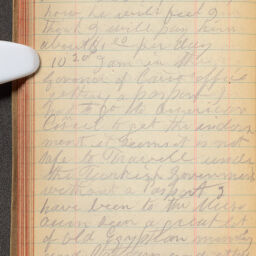 how he will feel I
think I will pay him
about $1.00 per day
10 20 I am in the
Govenor of Cairo office
getting a passport
had to go to American
Consel to get the indors
ment it seems it is not
safe to Travell under
the Turkish Government
without a Pasport I
have been to the Muse
aum seen a great lot
of old Egyptian mummy
and